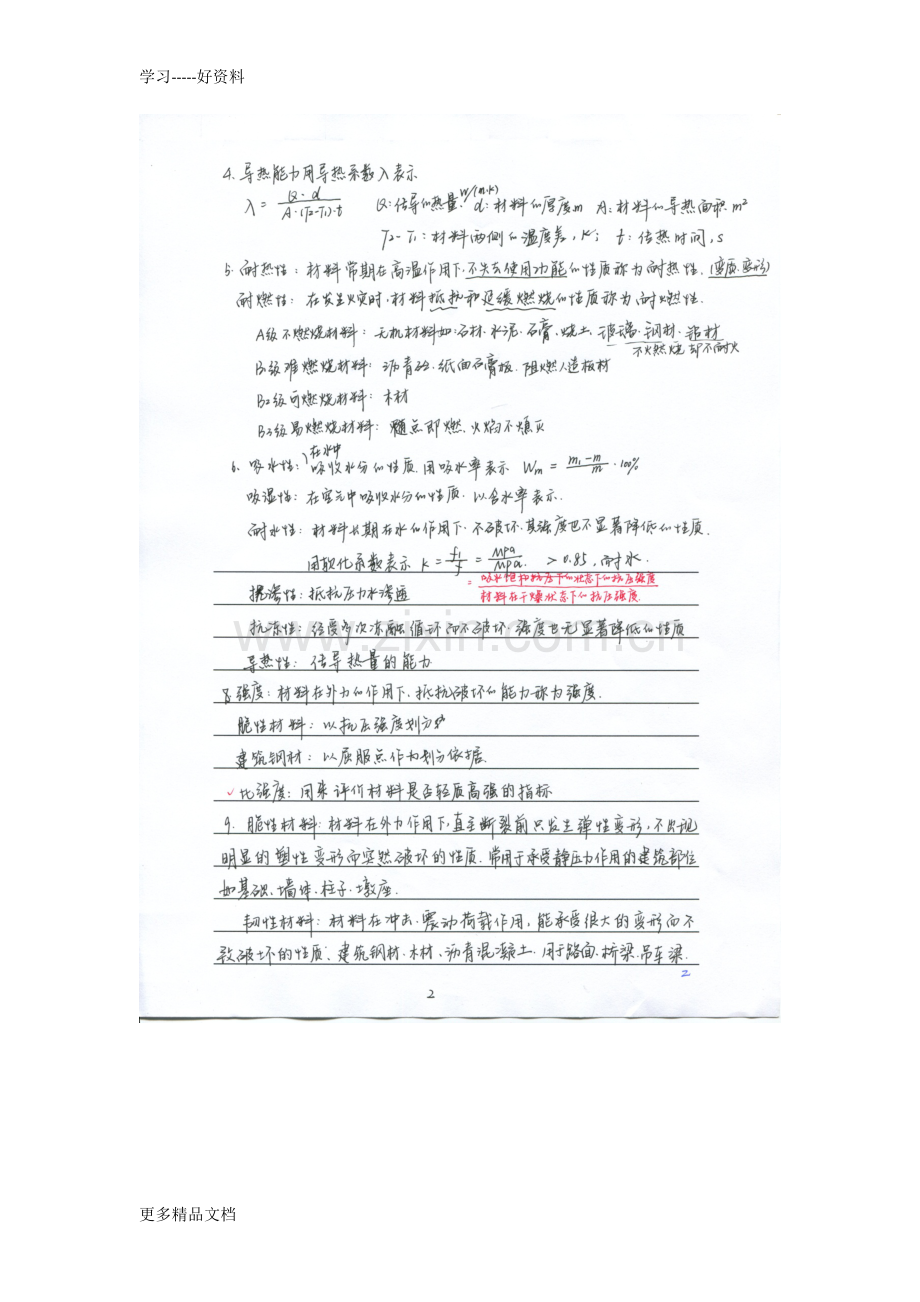 学习-----好资料
4. 导热能力用导热系数λ表示
λ = Q·d / A·(T2-T1)·t Q:传导的热量. W/(m·k) d:材料的厚度m A:材料的导热面积 m²
T2-T1:材料两侧的温度差,K; t:传热时间,s
5. 耐热性:材料常期在高温作用下,不失去使用功能的性质称为耐热性.(变质.变形)
耐燃性:在发生火灾时,材料抵抗和延缓燃烧的性质称为耐燃性.
A级不燃烧材料:无机材料如:石材.水泥.石膏.烧土.玻璃.钢材.铝材
不燃烧却不耐火
B1级难燃烧材料:沥青砼.纸面石膏板.阻燃人造板材
B2级可燃烧材料:木材
B3级易燃烧材料: 点即燃、火焰不熄灭
在水中
6. 吸水性:吸收水分的性质.用吸水率表示 Wm = m1-m / m · 100%
吸湿性:在空气中吸收水分的性质.以含水率表示.
耐水性:材料长期在水的作用下.不破坏.其强度也不显著降低的性质.
用软化系数表示 K = f1/f = MPa/MPa. > 0.85,耐水.
= 吸水饱和状态下的抗压强度
材料在干燥状态下的抗压强度.
抗渗性:抵抗压力水渗透
抗冻性:经受多次冻融循环而不破坏.强度也无显著降低的性质
导热性:传导热量的能力
8 强度:材料在外力的作用下.抵抗破坏的能力称为强度.
脆性材料:以抗压强度划分
建筑钢材:以屈服点作为划分依据.
✓比强度:用来评价材料是否轻质高强的指标
9. 脆性材料:材料在外力作用下,直至断裂前只发生弹性变形,不出现
明显的塑性变形而突然破坏的性质.常用于承受静压力作用的建筑部位
如基础、墙体.柱子.墩座.
韧性材料:材料在冲击.震动荷载作用,能承受很大的变形而不
致破坏的性质、建筑钢材.木材、沥青混凝土.用于路面.桥梁.吊车梁.
2
2
www.zixin.com.cn
更多精品文档